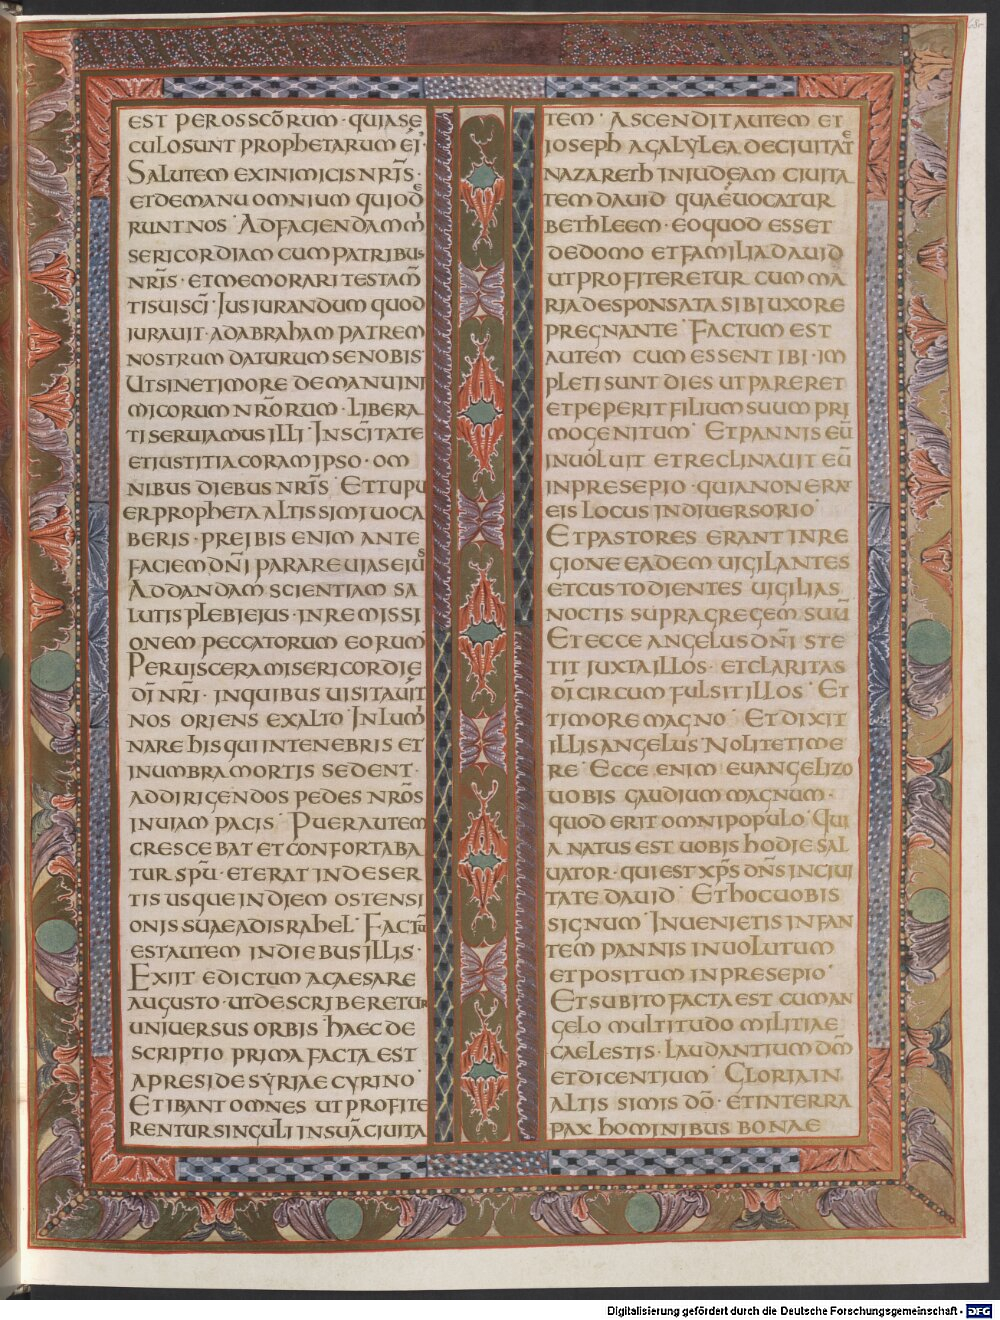 EST PEROSSCO͂RUM · QUIASE
CULOSUNT PROPHETARUM EI᾿·
SALUTEM EXINIMICIS NR͂IS ·
ETDEMANU OMNIUM QUIOD
RUNT NOS · ADFACIENDAM M
SERICORDIAM CUM PATRIBUS
NR͂IS · ETMEMORARI TESTAM̄
TISUISC͂I · IUSIURANDUM QUOD
IURAUIT · ADABRAHAM PATREM
NOSTRUM DATURUM SENOBIS
UTSINETIMORE DEMANUINI
MICORUM NRO͂RUM · LIBERA
TI SERUIAMUS ILLI · INSC͂ITATE
ETIUSTITIACORAM IPSO · OM
NIBUS DIEBUS NR͂IS · ETTUPU
ERPROPHETA ALTISSIMI UOCA
BERIS · PREIBIS ENIM ANTE
FACIEM DN͂I PARARE UIAS EIUS
ADDANDAM SCIENTIAM SA
LUTIS PLEBIEIUS · INREMISSI
ONEM PECCATORUM EORUM
PERUISCERAMISERICORDIE
DI͂ NR͂I · INQUIBUS UISITAUIT
NOS ORIENS EXALTO INLUM
NARE HIS QUI INTENEBRIS ET
INUMBRAMORTIS SEDENT ·
ADDIRIGENDOS PEDES NRO͂S
INUIAM PACIS · PUERAUTEM
CRESCEBAT ETCONFORTABA
TUR SPU͂ · ETERAT INDESER
TIS USQUE INDIEM OSTENSI
ONIS SUAEADISRAHEL · FACTŪ
ESTAUTEM INDIEBUS ILLIS ·
EXIIT EDICTUM ACAESARE
AUGUSTO · UTDESCRIBERETUR
UNIUERSUS ORBIS · HAEC DE
SCRIPTIO PRIMA FACTA EST
APRESIDE SYRIAE CYRINO ·
ETIBANT OMNES UTPROFITE
RENTUR SINGULI INSUĀCIUITA
TEM · ASCENDIT AUTEM ET
IOSEPH AGALYLEA DECIUITATE
NAZARETH INIUDEAM CIUITA
TEM DAUID QUAEUOCATUR
BETHLEEM · EOQUOD ESSET
DEDOMO ETFAMILIADAUID
UTPROFITERETUR CUM MA
RIADESPONSATA SIBI UXORE
PREGNANTE · FACTUM EST
AUTEM CUM ESSENT IBI · IM
PLETI SUNT DIES UT PARERET
ETPEPERIT FILIUM SUUM PRI
MOGENITUM · ETPANNIS EŪ
INUOLUIT ETRECLINAUIT EŪ
INPRESEPIO · QUIANON ERAT
EIS LOCUS INDIUERSORIO
ETPASTORES ERANT INRE
GIONE EADEM UIGILANTES
ETCUSTODIENTES UIGILIAS
NOCTIS SUPRAGREGEM SUŪ
ETECCE ANGELUS DN͂I STE
TIT IUXTA ILLOS · ETCLARITAS
DI͂ CIRCUM FULSIT ILLOS · ET
TIMORE MAGNO · ETDIXIT
ILLIS ANGELUS NOLITE TIME
RE · ECCE ENIM EUANGELIZO
UOBIS GAUDIUM MAGNUM ·
QUOD ERIT OMNIPOPULO · QUI
A NATUS EST UOBIS HODIE SAL
UATOR · QUI EST XP͂S DN͂S INCIUI
TATE DAUID · ETHOCUOBIS
SIGNUM · INUENIETIS INFAN
TEM PANNIS INUOLUTUM
ETPOSITUM INPRESEPIO ·
ETSUBITO FACTA EST CUM AN
GELO MULTITUDO MILITIAE
CAELESTIS · LAUDANTIUM DM̄
ETDICENTIUM · GLORIA IN
ALTISSIMIS DO͂ · ETINTERRA
PAX HOMINIBUS BONAE
Digitalisierung gefördert durch die Deutsche Forschungsgemeinschaft - DFG